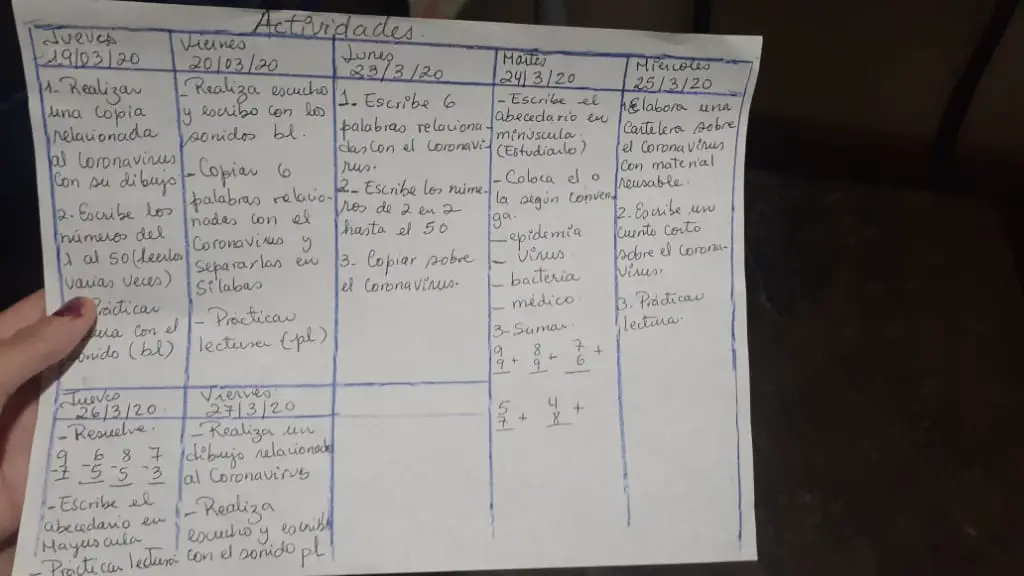 Actividades.
Jueves
19/03/20
1- Realizar
una copia
relacionada
al Coronavirus
con su dibujo
2- Escribe los
números del
1 al 50 (leerlos
varias veces)
Prácticar
con el
(bl)
Viernes
20/03/20
- Realiza escucho
y escribo con los
sonidos bl.
- Copiar 6
palabras relacio-
nadas con el
Coronavirus y
separarlas en
Silabas
- Prácticar
lectura (pl)
Lunes
23/3/20
1. Escribe 6
palabras relaciona-
das con el Coronavi-
rus.
2- Escribe los núme-
ros de 2 en 2
hasta el 50
3. Copiar sobre
el Coronavirus.
Martes
24/3/20
- Escribe el
abecedario en
minúscula.
(Estudiarlo)
- Coloca el o
la según conven-
ga.
- epidemia
- Virus
- bacteria
- médico.
3- Sumar.
9 8 7 +
9 + 9 + 6
5 4 +
7 + 8
Miércoles
25/3/20
1. Elabora una
Cartelera sobre
el Coronavirus
con material
reusable.
2. Escribe un
cuento corto
sobre el corona-
Virus.
3. Prácticar
lectura.
Jueves
26/3/20
- Resuelve.
9 6 8 7
-7 -5 -5 -3
- Escribe el
abecedario en
Mayuscula
- Practicar lectura
Viernes
27/3/20
- Realiza un
dibujo relacionado
al Coronavirus
- Realiza
escucho y escribo
con el sonido pl